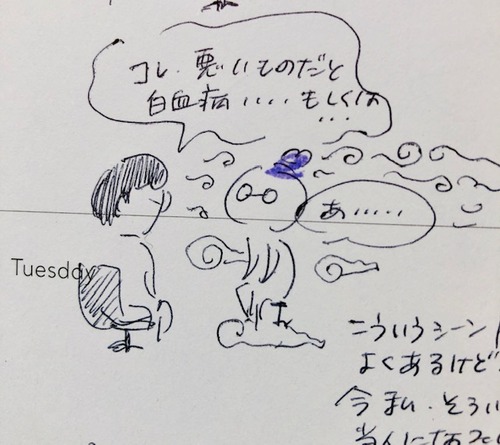 コレ、悪いものだと
白血病‥‥もしくは
…
あ‥‥‥
Tuesday
こういうシーン
よくあるけど
今私、そうい
当人になって